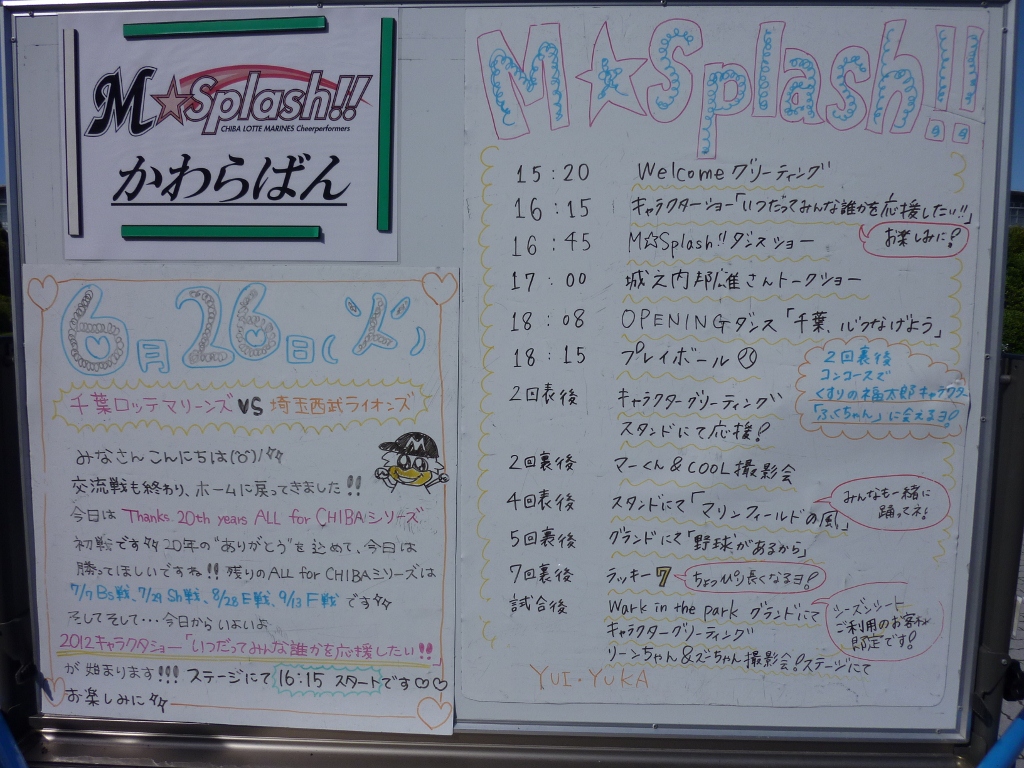 M☆Splash!!
CHIBA LOTTE MARINES Cheerperformers
かわらばん
6月26日(火)
千葉ロッテマリーンズ VS 埼玉西武ライオンズ
みなさんこんにちは(^o^)/
交流戦も終わり、ホームに戻ってきました!!
今日は Thanks 20th years ALL for CHIBAシリーズ
初戦です 20年の"ありがとう"を込めて、今日は
勝ってほしいですね!! 残りのALL for CHIBAシリーズは
7/7 Bs戦、7/29 Sh戦、8/28 E戦、9/13 F戦 です
そしてそして…今日からいよいよ
2012キャラクタショー「いつだってみんな誰かを応援したい!!
が始まります!!! ステージにて 16:15 スタートです♡♡
お楽しみに
M☆Splash!!
15:20 Welcomeグリーティング
16:15 キャラクターショー「いつだってみんな誰かを応援したい!!」
お楽しみに!
16:45 M☆Splash!!ダンスショー
17:00 城之内邦雄さんトークショー
18:08 OPENINGダンス「千葉、心つなげよう」
18:15 プレイボール
2回表後 キャラクターグリーティング
スタンドにて応援!
2回裏後
コンコースで
くすりの福太郎キャラクター
「ふくちゃん」に会えるヨ!
2回裏後 マーくん&COOL撮影会
4回表後 スタンドにて「マリンフィールドの風」
みんなも一緒に
踊ってネ!
5回裏後 グランドにて「野球があるから」
7回裏後 ラッキー7
ちょっぴり長くなるヨ!
試合後 Wark in the park グランドにて
キャラクターグリーティング
リーンちゃん&ズーちゃん撮影会!ステージにて
シーズンシート
ご利用のお客様
限定です!
YUI・YUKA